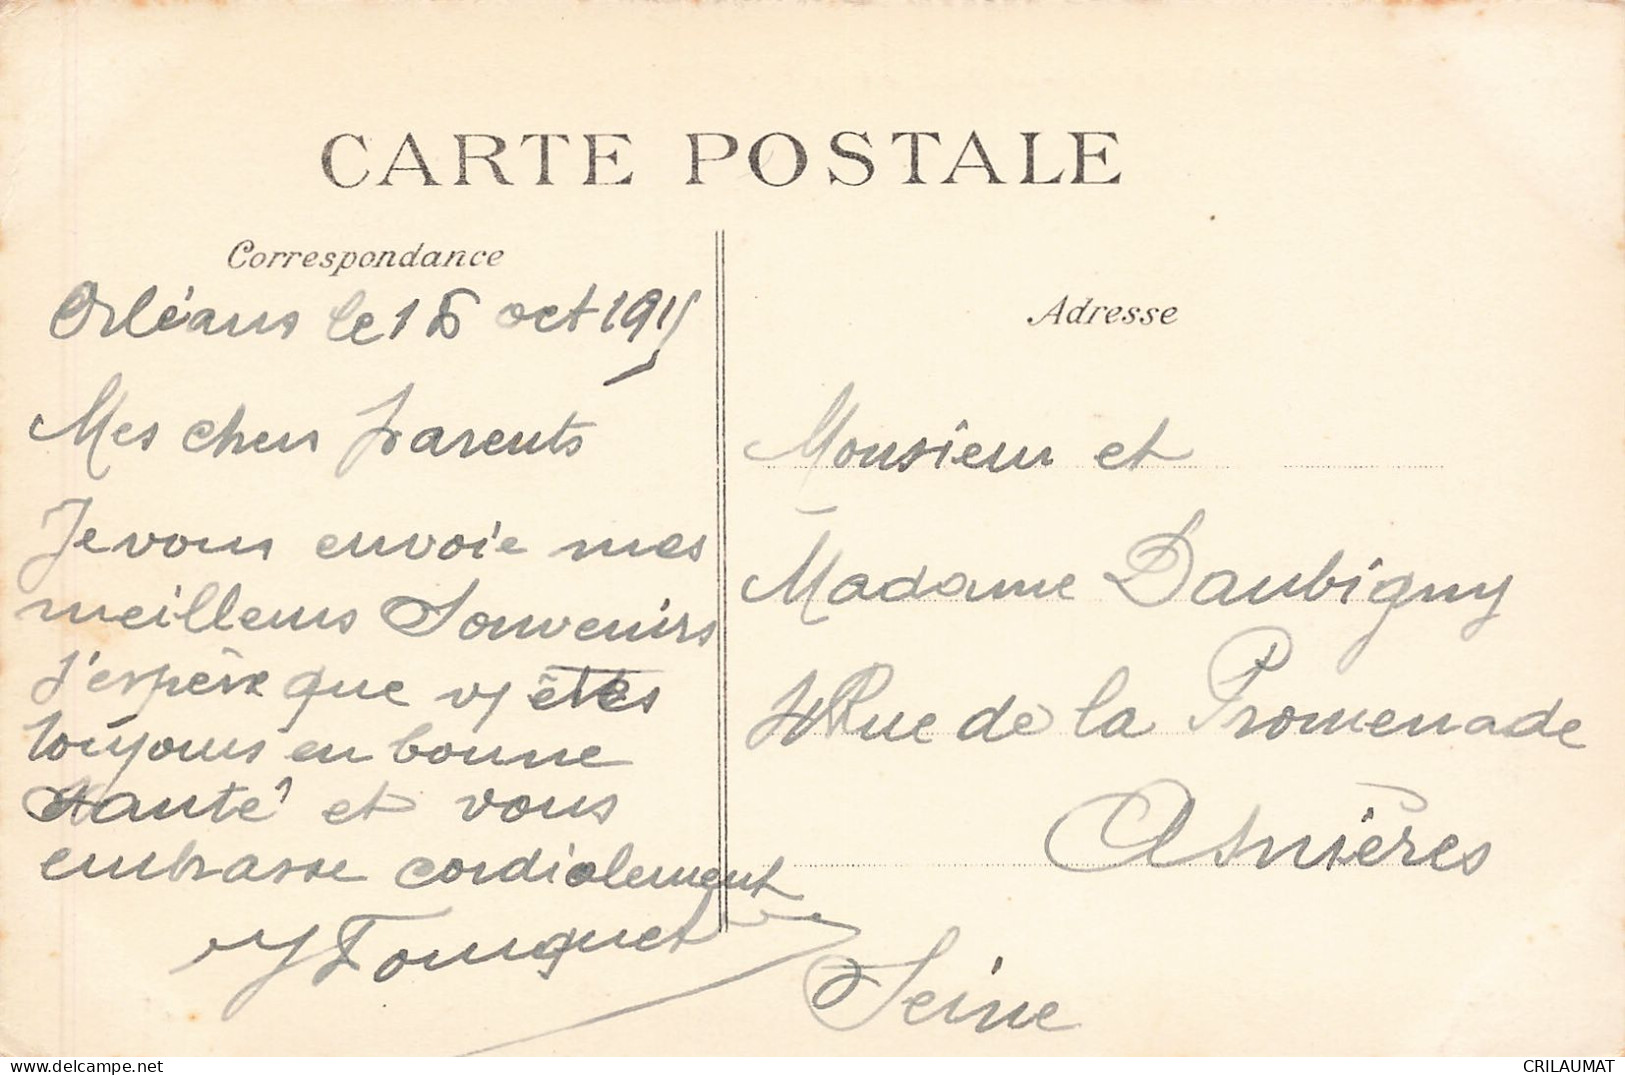 CARTE POSTALE
Correspondance
Orléans le 18 oct 1915
Mes chers parents
Je vous envoie mes
meilleurs Souvenirs
J'espère que vs êtes
toujours en bonne
santé et vous
embrasse cordialement
Fouquet
Adresse
Monsieur et
Madame Daubigny
Rue de la Promenade
Asnières
Seine
www.delcampe.net
CRILAUMAT